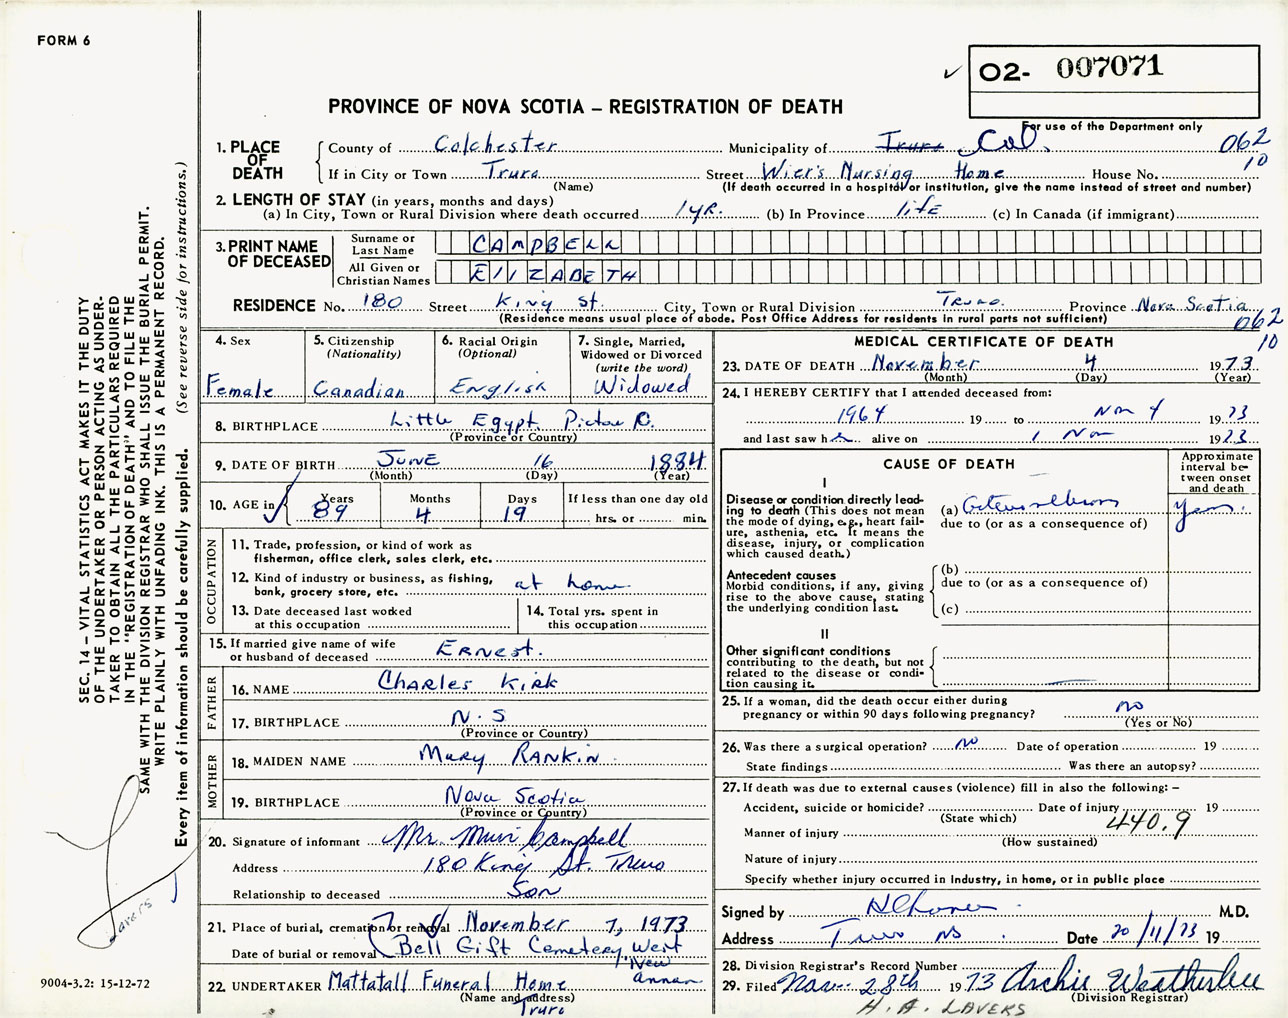 FORM 6
✓ O2- 007071
PROVINCE OF NOVA SCOTIA – REGISTRATION OF DEATH
For use of the Department only
1. PLACE OF DEATH
County of Colchester Municipality of Truro Col. 062
If in City or Town Truro Street Wier's Nursing Home House No. 10
(Name) (If death occurred in a hospital or institution, give the name instead of street and number)
2. LENGTH OF STAY (in years, months and days)
(a) In City, Town or Rural Division where death occurred 1 yr. (b) In Province life (c) In Canada (if immigrant)
3. PRINT NAME OF DECEASED
Surname or Last Name CAMPBELL
All Given or Christian Names ElIZABETH
RESIDENCE No. 180 Street King St. City, Town or Rural Division Truro. Province Nova Scotia
(Residence means usual place of abode. Post Office Address for residents in rural parts not sufficient)
062
10
4. Sex
Female
5. Citizenship
(Nationality)
Canadian
6. Racial Origin
(Optional)
English
7. Single, Married,
Widowed or Divorced
(write the word)
Widowed
8. BIRTHPLACE Little Egypt Pictou C.
(Province or Country)
9. DATE OF BIRTH JUNE 16 1884
(Month) (Day) (Year)
10. AGE in
Years Months Days If less than one day old
89 4 19 hrs. or min.
OCCUPATION
11. Trade, profession, or kind of work as
fisherman, office clerk, sales clerk, etc.
12. Kind of industry or business, as fishing,
bank, grocery store, etc. at home
13. Date deceased last worked
at this occupation
14. Total yrs. spent in
this occupation
15. If married give name of wife
or husband of deceased ERNEST.
FATHER
16. NAME CHARLES KIRK
17. BIRTHPLACE N.S
(Province or Country)
MOTHER
18. MAIDEN NAME Mary RANKIN
19. BIRTHPLACE Nova Scotia
(Province or Country)
20. Signature of informant Mr. Muir Campbell
Address 180 King St. Truro
Relationship to deceased Son
21. Place of burial, cremation or removal November 7, 1973
Date of burial or removal Bell Gift Cemetery, West
New
annan
22. UNDERTAKER Mattatall Funeral Home
(Name and address)
Truro
MEDICAL CERTIFICATE OF DEATH
23. DATE OF DEATH November 4 1973
(Month) (Day) (Year)
24. I HEREBY CERTIFY that I attended deceased from:
1964 19 to Nov 4 1973
and last saw her alive on 1 Nov 1973
CAUSE OF DEATH
Approximate
interval be-
tween onset
and death
I
Disease or condition directly lead-
ing to death (This does not mean
the mode of dying, e.g., heart fail-
ure, asthenia, etc. It means the
disease, injury, or complication
which caused death.)
(a) Years.
due to (or as a consequence of)
Antecedent causes
Morbid conditions, if any, giving
rise to the above cause, stating
the underlying condition last.
(b)
due to (or as a consequence of)
(c)
II
Other significant conditions
contributing to the death, but not
related to the disease or condi-
tion causing it.
25. If a woman, did the death occur either during
pregnancy or within 90 days following pregnancy? no
(Yes or No)
26. Was there a surgical operation? no Date of operation 19
State findings Was there an autopsy?
27. If death was due to external causes (violence) fill in also the following: –
Accident, suicide or homicide? Date of injury 19
(State which)
440.9
Manner of injury
(How sustained)
Nature of injury
Specify whether injury occurred in Industry, in home, or in public place
Signed by M.D.
Address Truro NS. Date 20/11/73 19
28. Division Registrar's Record Number
29. Filed Nov. 28th 1973 Archie Weatherbee
(Division Registrar)
H. A. LAVERS
SEC. 14 – VITAL STATISTICS ACT MAKES IT THE DUTY
OF THE UNDERTAKER OR PERSON ACTING AS UNDER-
TAKER TO OBTAIN ALL THE PARTICULARS REQUIRED
IN THE "REGISTRATION OF DEATH" AND TO FILE THE
SAME WITH THE DIVISION REGISTRAR WHO SHALL ISSUE THE BURIAL PERMIT.
WRITE PLAINLY WITH UNFADING INK. THIS IS A PERMANENT RECORD.
Every item of information should be carefully supplied. (See reverse side for instructions.)
Lavers
9004-3.2: 15-12-72